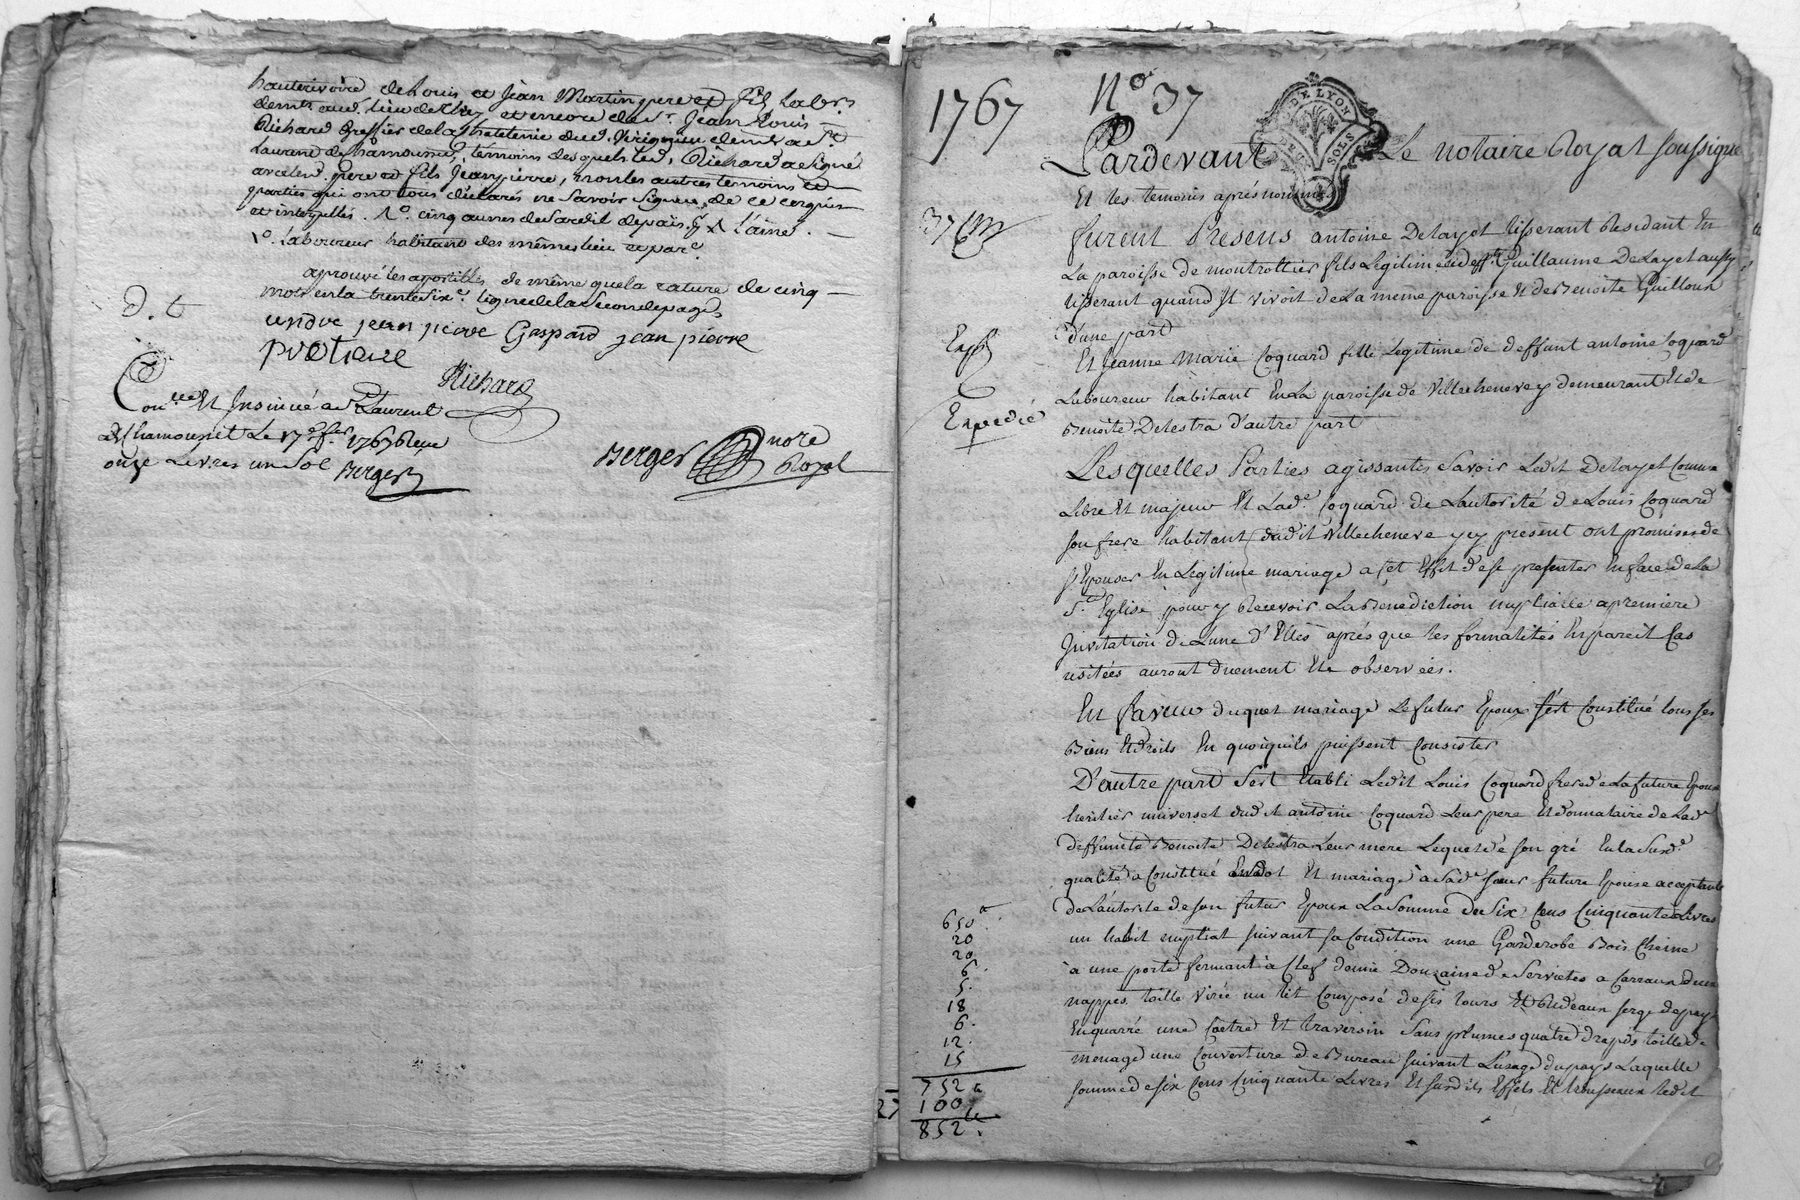 hauterivoire de Louis et Jean Martin pere et fils lab.rs
demts aud. lieu de et encore de Sr. Jean Louis
Richard Greffier de la Chatelenie dud. demt a St.
Laurent de Chamousset, témoins desquels led. Richard a signé
avec led. pere et fils Jeanpierre, non les autres temoins et
parties qui ont tous déclarés ne savoir signer, de ce enquis
et interpellés. cinq aunes de Sardit depaïs, l'ainé.
laboureur habitant des mêmes lieu et par.e
aprouvé les apostilles de même que la rature de cinq
mots en la trente six.e ligne de la seconde page
D. t
jean pierre Gaspard jean pierre
Richard
Con.lé Et Insinué a St Laurent
de Chamousset Le 17e 1767 Reçu
onze Livres un Sol Berger
Berger nore
Royal
1767 No. 37
DE LYON
SOLS
Pardevant Le notaire Royal soussigné
Et les temoins aprés nommés
37
furent Presens antoine Delayet tisserant Residant En
La paroisse de montrottier fils Legitime de deff.t Guillaume Delayet aussy
tisserant quand Il vivoit de La meme paroisse Et de Benoite Guilloux
d'une part
Et Jeanne Marie Coquard fille Legitime de deffunt antoine Coquard
Laboureur habitant En La paroisse de Villecheneve y demeurant Et de
Expedié
Benoite Delestra d'autre part
Lesquelles Parties agissantes Savoir Ledit Delayet Comme
Libre Et majeur Et Lad.e Coquard de Lautorité de Louis Coquard
son frere habitant dudit Villecheneve y présent ont promis de
s'Epouser En Legitime mariage a Cet Effet de se presenter En face de La
S.te Eglise pour y Recevoir La Benediction nuptialle a premiere
Invitation de L'une d'Elles aprés que les formalités En pareil Cas
usitées auront duement Eté observées.
En faveur duquel mariage Le futur Epoux s'est Constitué tous ses
Biens Et droits En quoiquils puissent Consister
D'autre part s'est Etabli Ledit Louis Coquard frere de La future Epouse
heritier universel dudit antoine Coquard Leur pere Et donnataire de Lad.e
deffunte Benoite Delestra Leur mere Lequel de son gré En la Susd.e
qualité a Constitué En dot Et mariage à Sad.e Soeur future Epouse acceptante
de L'autorité de son futur Epoux La Somme de Six Cens Cinquante Livres
un habit nuptial suivant sa Condition une Garderobe Bois Cheine
à une porte fermant à Clef demie Douzaine de Serviettes a Careaux deux
nappes toille virée un lit Composé de ses tours Et Rideaux serge de pays
En quarré une Coetre Et traversin Sans plumes quatre draps toille de
menage une Couverture de Bureau suivant L'usage du pays Laquelle
somme de six Cens Cinquante Livres Et susdits Effets Et trousseaux ledit
650
20
20
6
5
18
6
12
15
752
100
852